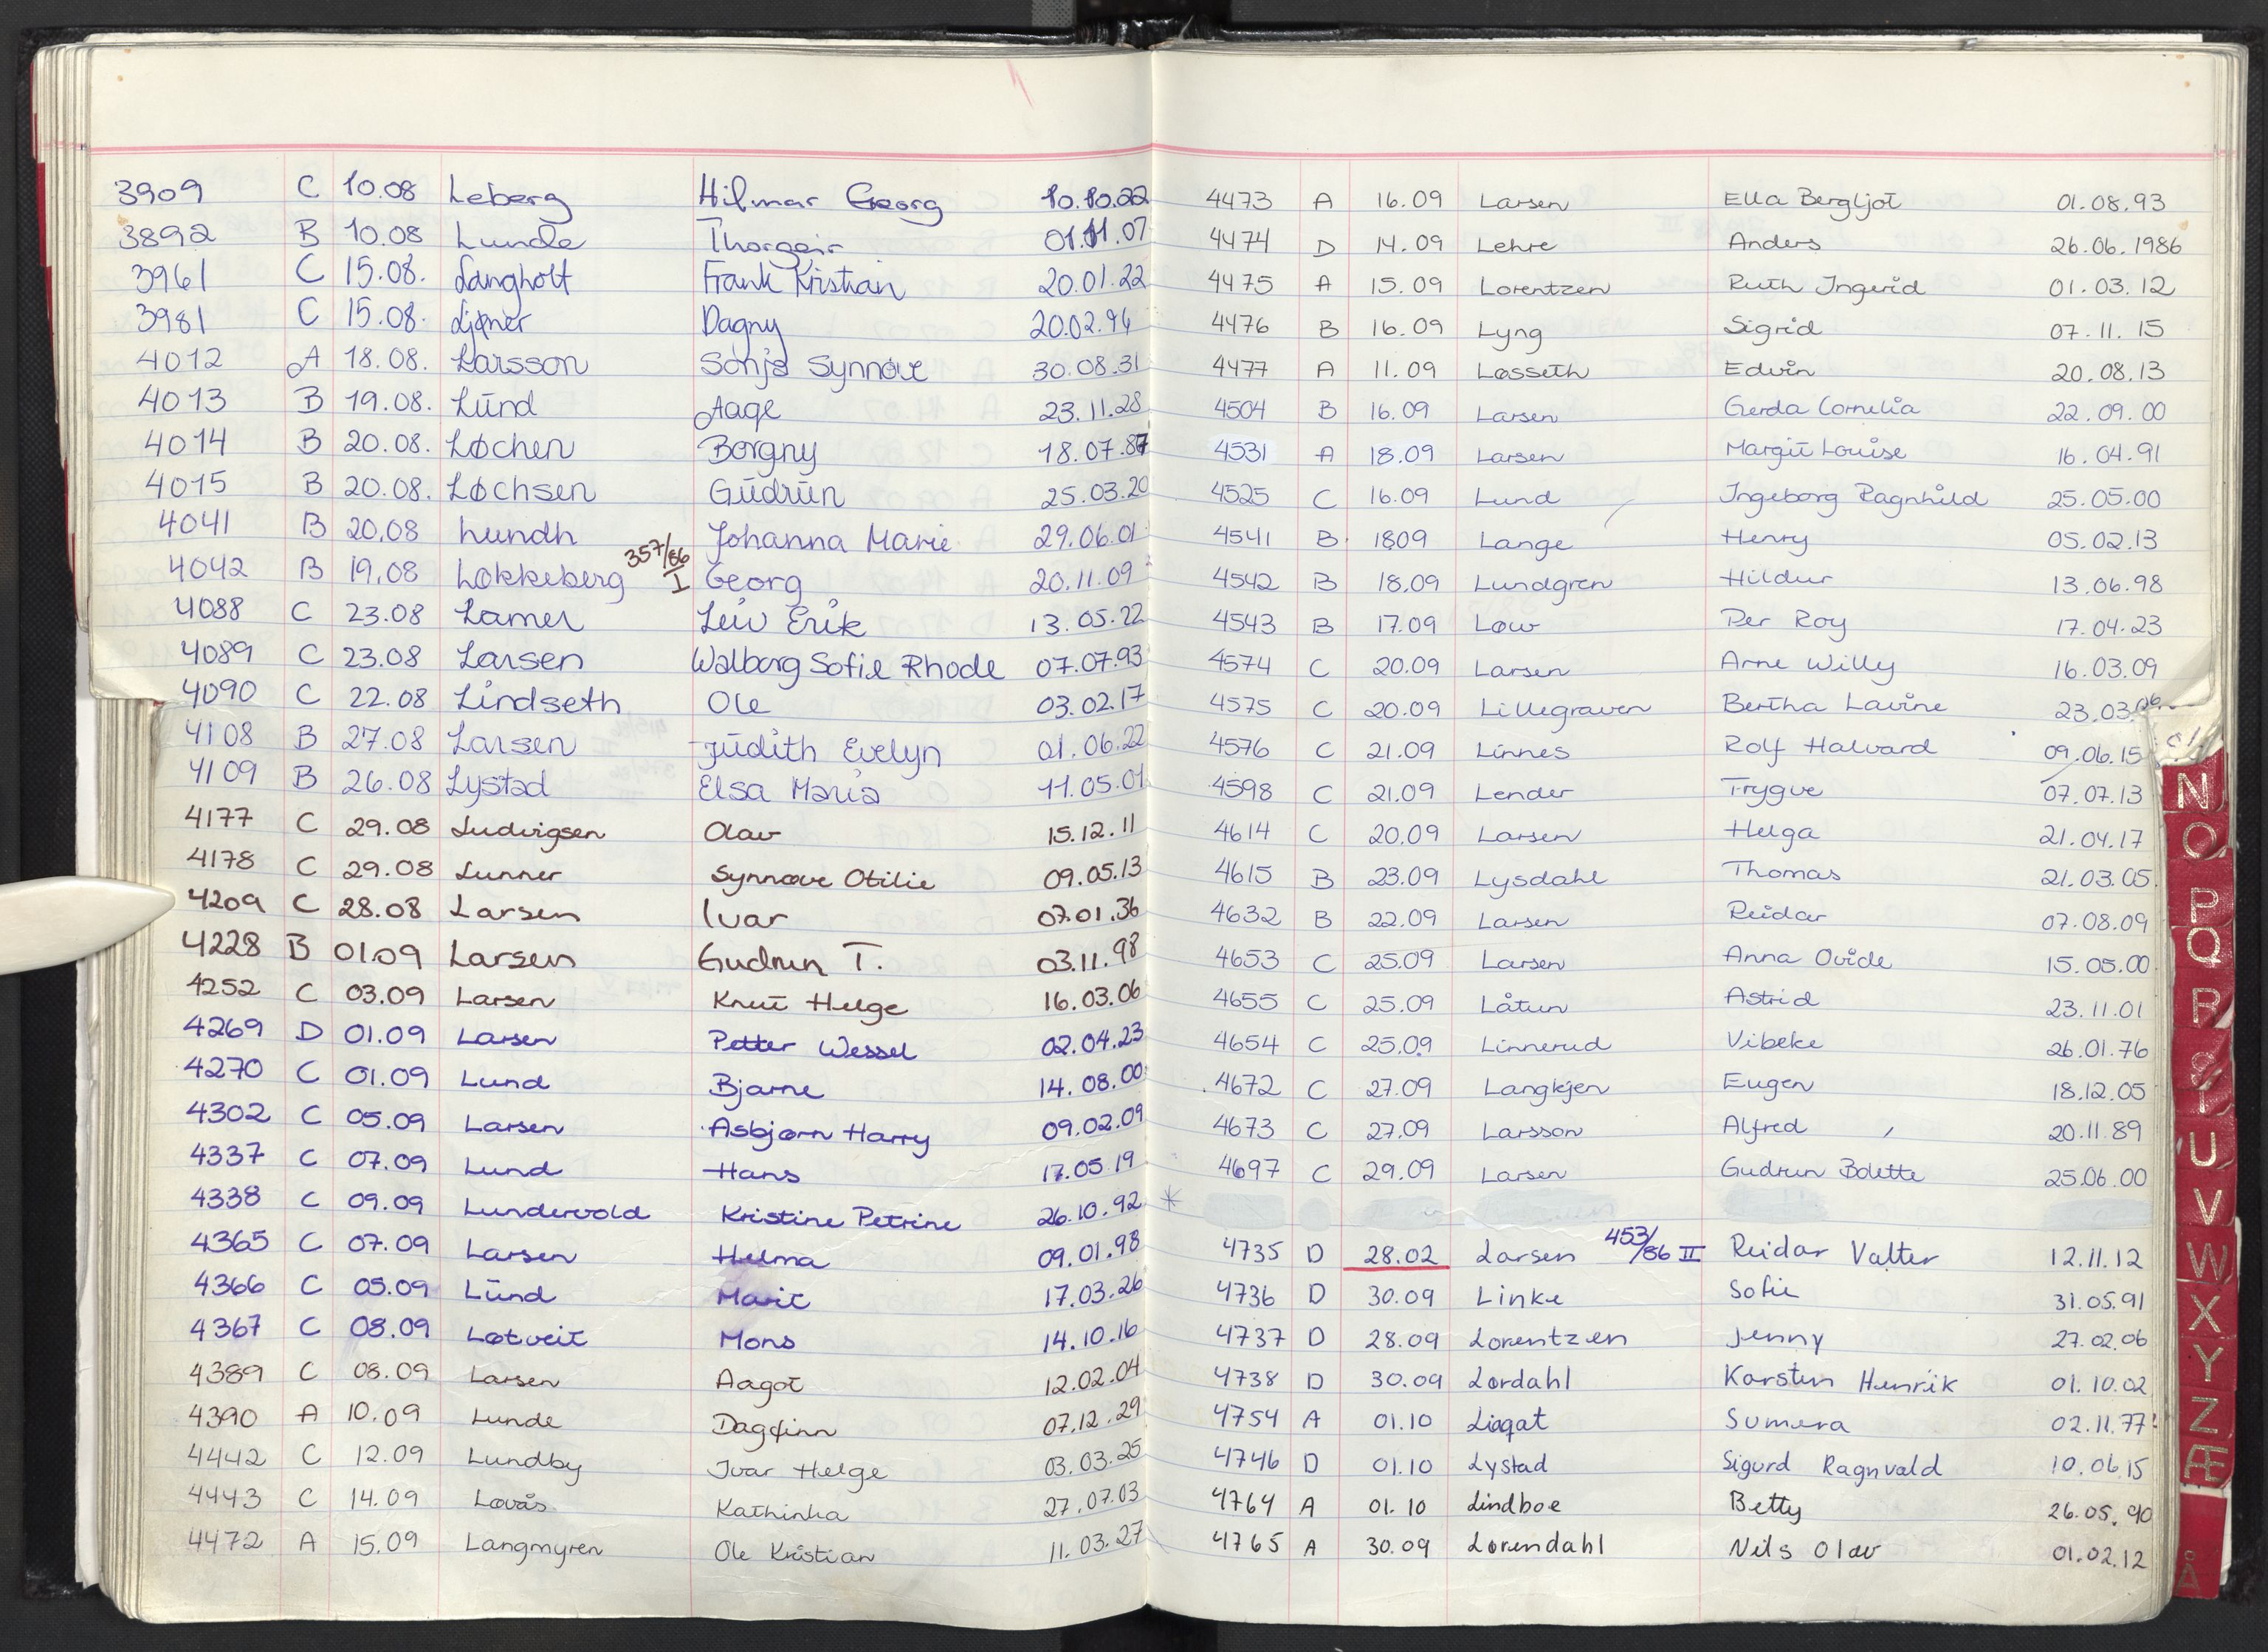 3909 C 10.08 Leberg Hilmar Georg 10.10.22
3892 B 10.08 Lunde Thorgeir 01.11.07
3961 C 15.08. Langholt Frank Kristian 20.01.22
3981 C 15.08. Ljøner Dagny 20.02.94
4012 A 18.08. Larsson Sonja Synnøve 30.08.31
4013 B 19.08. Lund Aage 23.11.28
4014 B 20.08. Løchen Borgny 18.07.87
4015 B 20.08. Løchsen Gudrun 25.03.20
4041 B 20.08 Lundh Johanna Marie 29.06.01
4042 B 19.08 Løkkeberg 357/86 I Georg 20.11.09
4088 C 23.08 Lamer Leiv Erik 13.05.22
4089 C 23.08 Larsen Walborg Sofie Rhode 07.07.93
4090 C 22.08 Lindseth Ole 03.02.17
4108 B 27.08 Larsen Judith Evelyn 01.06.22
4109 B 26.08 Lystad Elsa Maria 11.05.01
4177 C 29.08 Ludvigsen Olav 15.12.11
4178 C 29.08 Lunner Synnøve Otilie 09.05.13
4209 C 28.08 Larsen Ivar 07.01.36
4228 B 01.09 Larsen Gudrun T. 03.11.98
4252 C 03.09 Larsen Knut Helge 16.03.06
4269 D 01.09 Larsen Petter Wessel 02.04.23
4270 C 01.09 Lund Bjarne 14.08.00
4302 C 05.09 Larsen Asbjørn Harry 09.02.09
4337 C 07.09 Lund Hans 17.05.19
4338 C 09.09 Lundervold Kristine Petrine 26.10.92
4365 C 07.09 Larsen Helma 09.01.98
4366 C 05.09 Lund Marit 17.03.26
4367 C 08.09 Løtveit Mons 14.10.16
4389 C 08.09 Larsen Aagot 12.02.04
4390 A 10.09 Lunde Dagfinn 07.12.29
4442 C 12.09 Lundby Ivar Helge 03.03.25
4443 C 14.09 Løvås Kathinka 27.07.03
4472 A 15.09 Langmyren Ole Kristian 11.03.27
4473 A 16.09 Larsen Ella Bergljot 01.08.93
4474 D 14.09 Lehre Anders 26.06.1986
4475 A 15.09 Lorentzen Ruth Ingerid 01.03.12
4476 B 16.09 Lyng Sigrid 07.11.15
4477 A 11.09 Løsseth Edvin 20.08.13
4504 B 16.09 Larsen Gerda Cornelia 22.09.00
4531 A 18.09 Larsen Margit Louise 16.04.91
4525 C 16.09 Lund Ingeborg Ragnhild 25.05.00
4541 B 1809 Lange Henry 05.02.13
4542 B 18.09 Lundgren Hildur 13.06.98
4543 B 17.09 Løw Per Roy 17.04.23
4574 C 20.09 Larsen Arne Willy 16.03.09
4575 C 20.09 Lillegraven Bertha Lavine 23.03.
4576 C 21.09 Linnes Rolf Halvard 09.06.15
4598 C 21.09 Lender Trygve 07.07.13
4614 C 20.09 Larsen Helga 21.04.17
4615 B 23.09 Lysdahl Thomas 21.03.05
4632 B 22.09 Larsen Reidar 07.08.09
4653 C 25.09 Larsen Anna Ovide 15.05.00
4655 C 25.09 Låtun Astrid 23.11.01
4654 C 25.09 Linnerud Vibeke 26.01.76
4672 C 27.09 Langkjen Eugen 18.12.05
4673 C 27.09 Larsson Alfred 20.11.89
4697 C 29.09 Larsen Gudrun Bolette 25.06.00
4735 D 28.02 Larsen 453/86 II Reidar Valter 12.11.12
4736 D 30.09 Linke Sofie 31.05.91
4737 D 28.09 Lorentzen Jenny 27.02.06
4738 D 30.09 Lørdahl Karsten Henrik 01.10.02
4754 A 01.10 Liaqat Sumera 02.11.77
4746 D 01.10 Lystad Sigurd Ragnvald 10.06.15
4764 A 01.10 Lindboe Betty 26.05.90
4765 A 30.09 Lørendahl Nils Olav 01.02.12
N
O
P
Q
R
S
T
U
V
W
X
Y
Z
Æ
Å